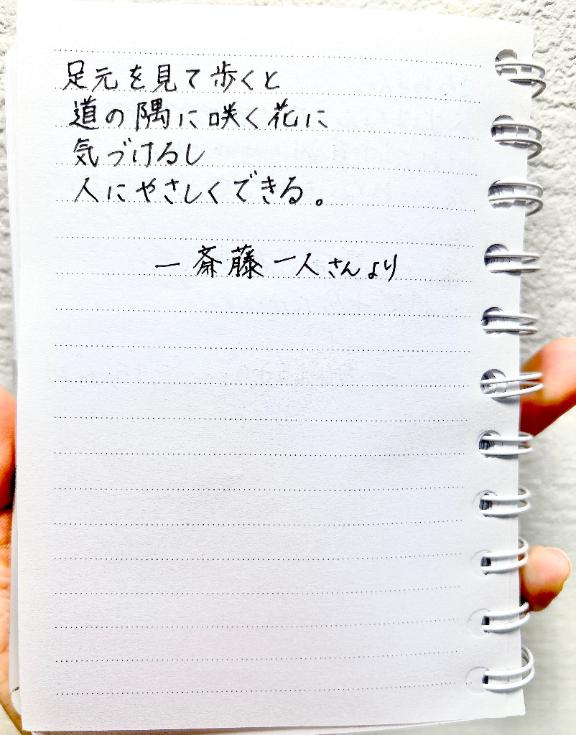 足元を見て歩くと
道の隅に咲く花に
気づけるし
人にやさしくできる。
― 斎藤 一人さんより